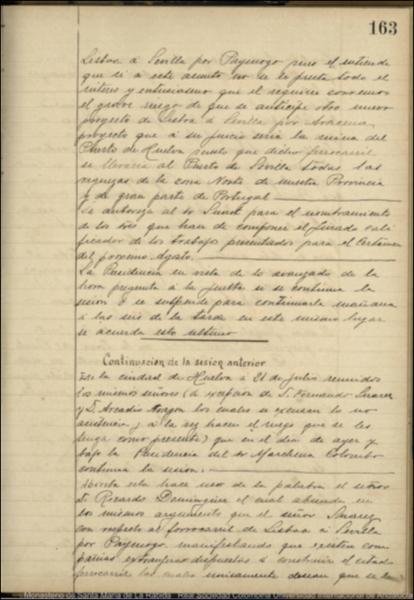 163
Lisboa á Sevilla por Paymogo pero él entiende
que si á este asunto no se le presta todo el
interés y entusiasmo que él requiere corremos
el grave riesgo de que se anticipe otro nuevo
proyecto de Lisboa á Sevilla por Aracena
proyecto que á su juicio sería la ruina del
Puerto de Huelva puesto que dicho ferrocarril
se llevaría al Puerto de Sevilla todas las
riquezas de la zona Norte de nuestra Provincia
y de gran parte de Portugal
Se autoriza al Sr para el nombramiento
de los tres que han de componer el Jurado cali
ficador de los trabajos presentados para el Certamen
del proximo Agosto.
La Presidencia en vista de lo avanzado de la
hora pregunta á la Junta si se continua la
sesion ó se suspende para continuarla mañana
á las seis de la tarde en este mismo lugar
se acuerda esto ultimo
Continuacion de la sesion anterior
En la ciudad de Huelva á 21 de Julio reunidos
los mismos señores (á excepcion de D. Fernando Suarez
y D. Arcadio Aragon los cuales se excusan la no
asistencia, á la vez hacen el ruego que se les
tenga como presente) que en el dia de ayer y
bajo la Presidencia del Sr Marchena Colombo
continua la sesion:
Abierta esta hace uso de la palabra el señor
D. Ricardo Dominguez el cual abunda en
los mismos argumentos que el señor Suarez
con respecto al ferrocarril de Lisboa á Sevilla
por Paymogo, manifestando que existen com
pañias extranjeras dispuestas á construir el citado
ferrocarril las cuales unicamente desean que se
Monasterio de Santa María de La Rábida - Real Sociedad Colombina